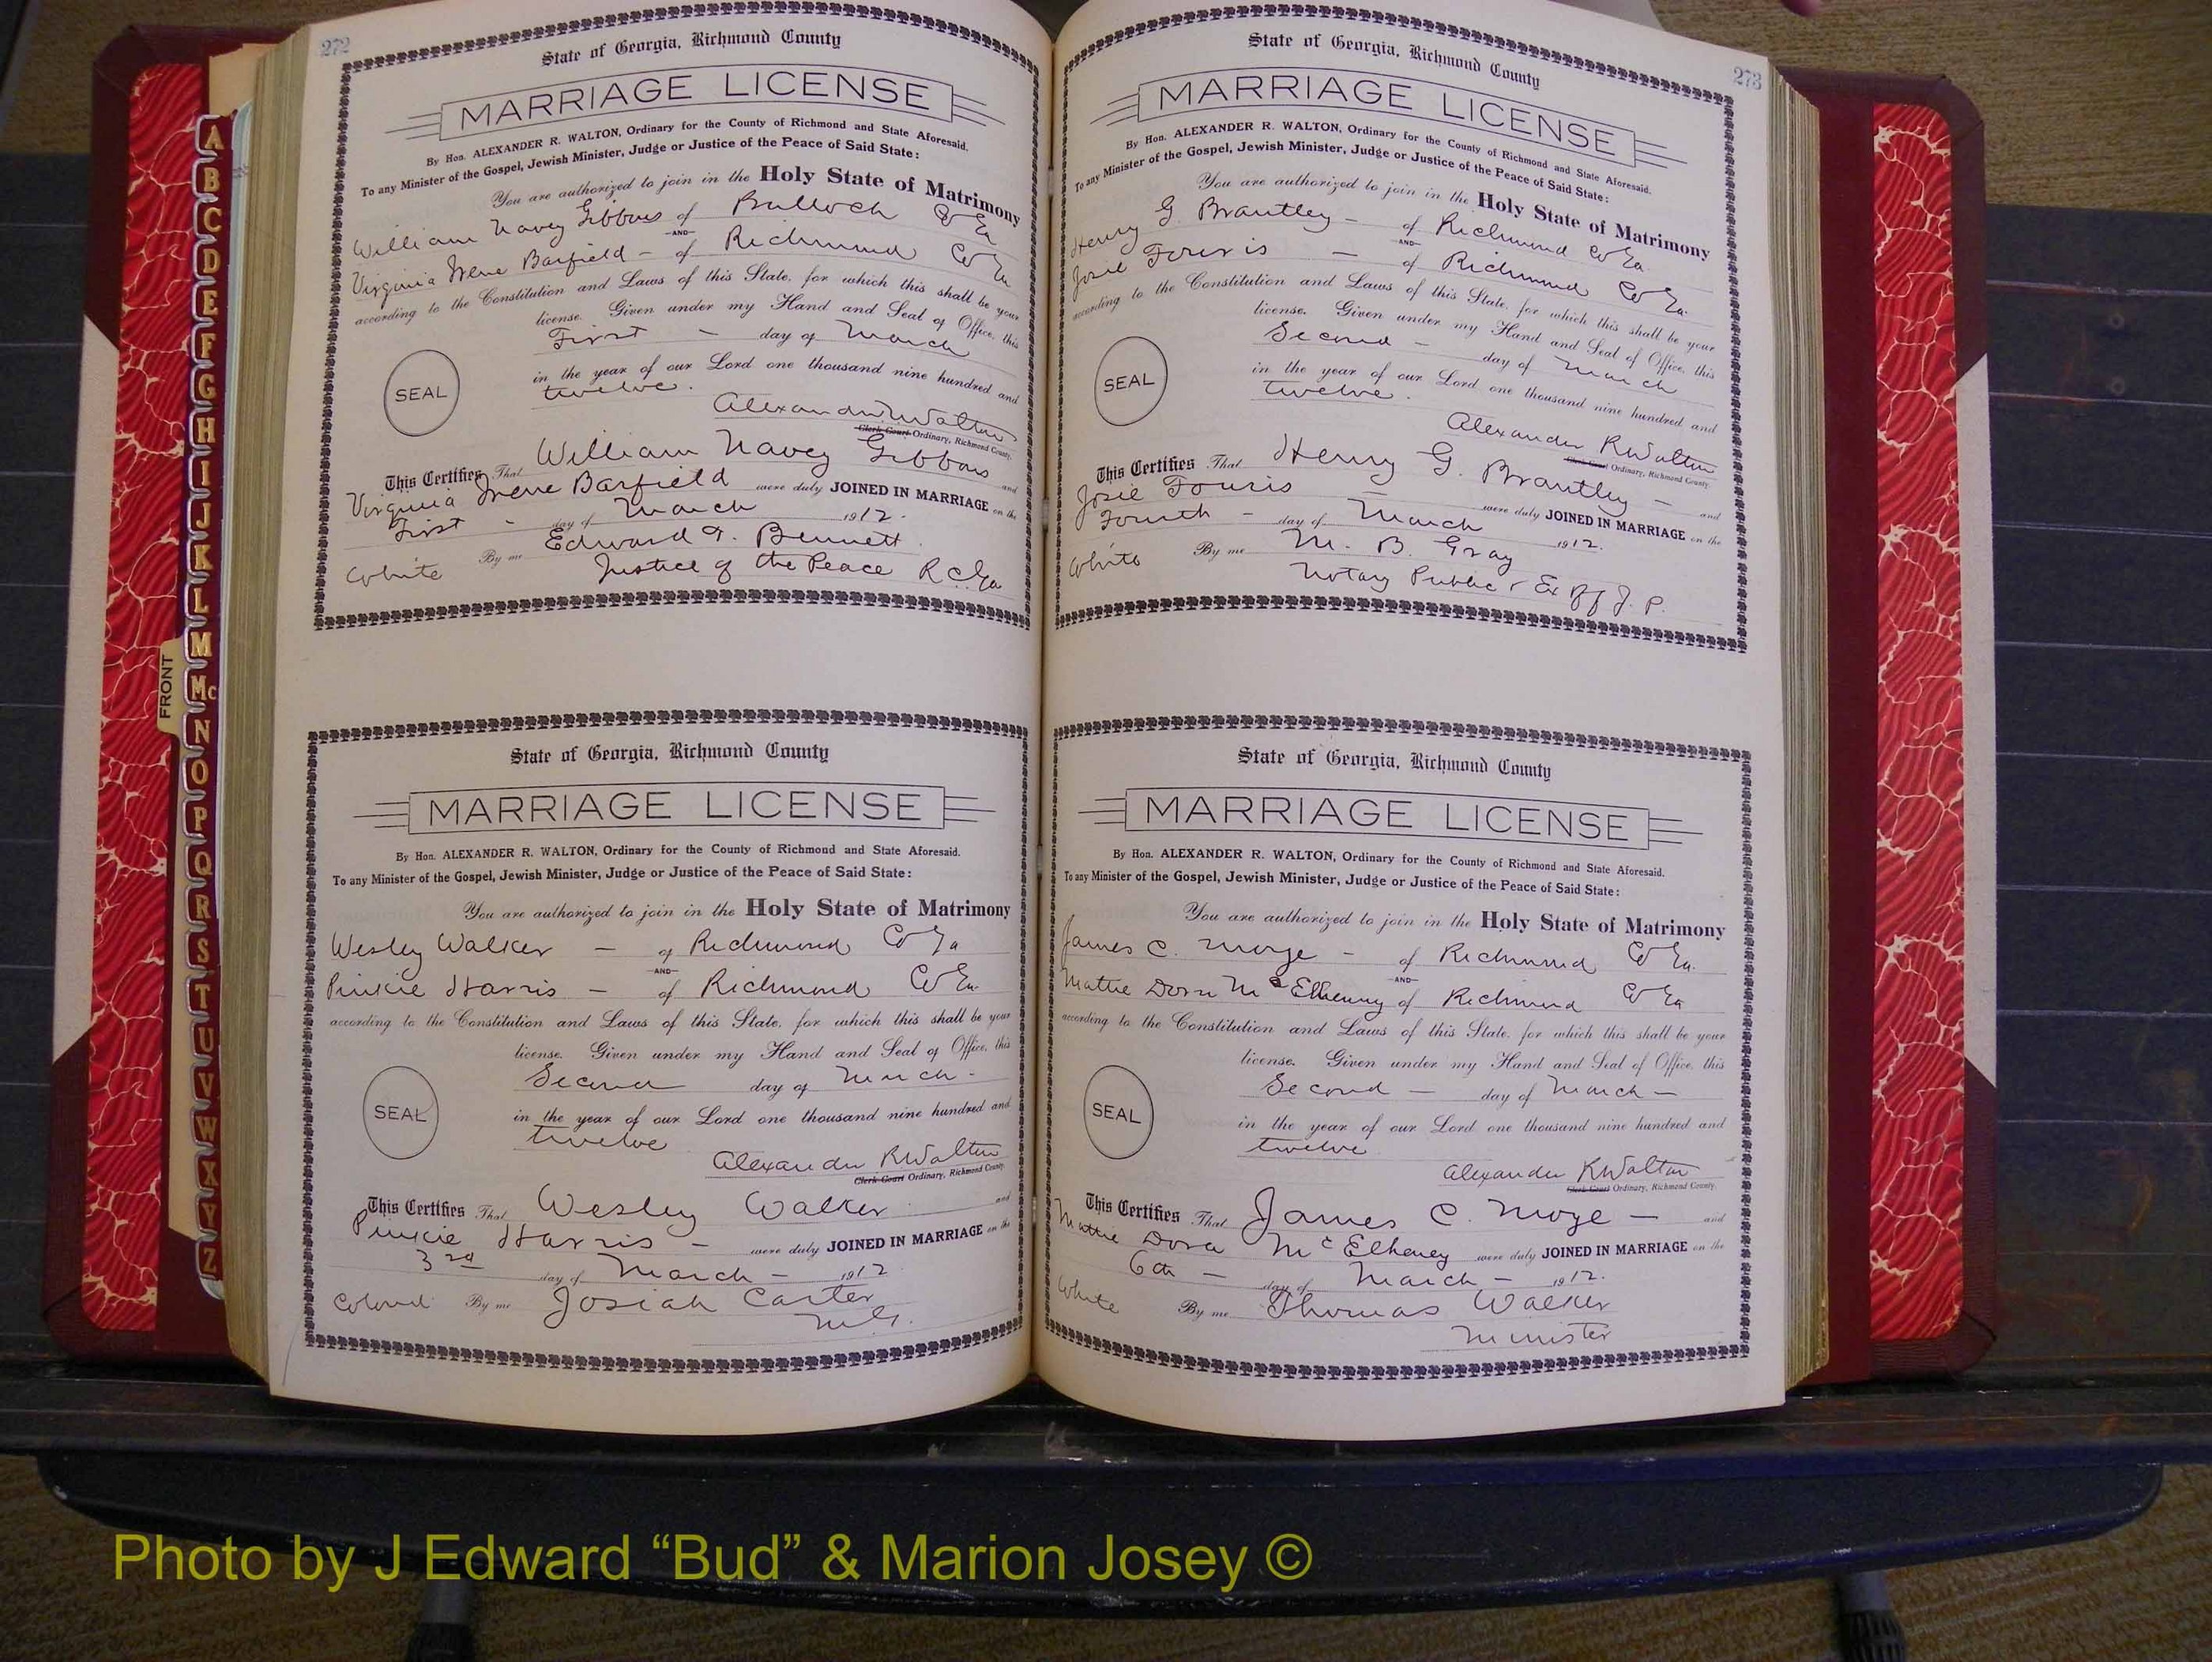 272
State of Georgia, Richmond County
MARRIAGE LICENSE
By Hon. ALEXANDER R. WALTON, Ordinary for the County of Richmond and State Aforesaid.
To any Minister of the Gospel, Jewish Minister, Judge or Justice of the Peace of Said State:
You are authorized to join in the Holy State of Matrimony
William Navey Gibbons of Bulloch Co Ga
AND
Virginia Irene Barfield - of Richmond Co Ga
according to the Constitution and Laws of this State, for which this shall be your
license. Given under my Hand and Seal of Office, this
First - day of March
in the year of our Lord one thousand nine hundred and
twelve.
SEAL
Alexander R Walton
Clerk Court Ordinary, Richmond County.
This Certifies That William Navey Gibbons and
Virginia Irene Barfield were duly JOINED IN MARRIAGE on the
First - day of March 1912.
White By me Edward T. Bennett
Justice of the Peace R.C. Ga
State of Georgia, Richmond County
MARRIAGE LICENSE
By Hon. ALEXANDER R. WALTON, Ordinary for the County of Richmond and State Aforesaid.
To any Minister of the Gospel, Jewish Minister, Judge or Justice of the Peace of Said State:
You are authorized to join in the Holy State of Matrimony
Wesley Walker - of Richmond Co Ga
AND
Pinkie Harris - of Richmond Co Ga
according to the Constitution and Laws of this State, for which this shall be your
license. Given under my Hand and Seal of Office, this
Second day of March -
in the year of our Lord one thousand nine hundred and
twelve
SEAL
Alexander R Walton
Clerk Court Ordinary, Richmond County.
This Certifies That Wesley Walker and
Pinkie Harris - were duly JOINED IN MARRIAGE on the
3rd day of March - 1912
Colored By me Josiah Carter
M.G.
273
State of Georgia, Richmond County
MARRIAGE LICENSE
By Hon. ALEXANDER R. WALTON, Ordinary for the County of Richmond and State Aforesaid.
To any Minister of the Gospel, Jewish Minister, Judge or Justice of the Peace of Said State:
You are authorized to join in the Holy State of Matrimony
Henry G. Brantley - of Richmond Co Ga
AND
Josie Fouris - of Richmond Co Ga
according to the Constitution and Laws of this State, for which this shall be your
license. Given under my Hand and Seal of Office, this
Second - day of March
in the year of our Lord one thousand nine hundred and
twelve.
SEAL
Alexander R Walton
Clerk Court Ordinary, Richmond County.
This Certifies That Henry G. Brantley - and
Josie Fouris were duly JOINED IN MARRIAGE on the
Fourth - day of March 1912.
White By me M. B. Gray
Notary Public & Ex Off J. P.
State of Georgia, Richmond County
MARRIAGE LICENSE
By Hon. ALEXANDER R. WALTON, Ordinary for the County of Richmond and State Aforesaid.
To any Minister of the Gospel, Jewish Minister, Judge or Justice of the Peace of Said State:
You are authorized to join in the Holy State of Matrimony
James C. Moye - of Richmond Co Ga.
AND
Mattie Dora McElheney of Richmond Co Ga
according to the Constitution and Laws of this State, for which this shall be your
license. Given under my Hand and Seal of Office, this
Second - day of March -
in the year of our Lord one thousand nine hundred and
twelve
SEAL
Alexander R Walton
Clerk Court Ordinary, Richmond County.
This Certifies That James C. Moye - and
Mattie Dora McElheney were duly JOINED IN MARRIAGE on the
6th - day of March - 1912.
White By me Thomas Walker
Minister
FRONT
A
B
C
D
E
F
G
H
I
J
K
L
M
Mc
N
O
P
Q
R
S
T
U
V
W
X
Y
Z
Photo by J Edward “Bud” & Marion Josey ©